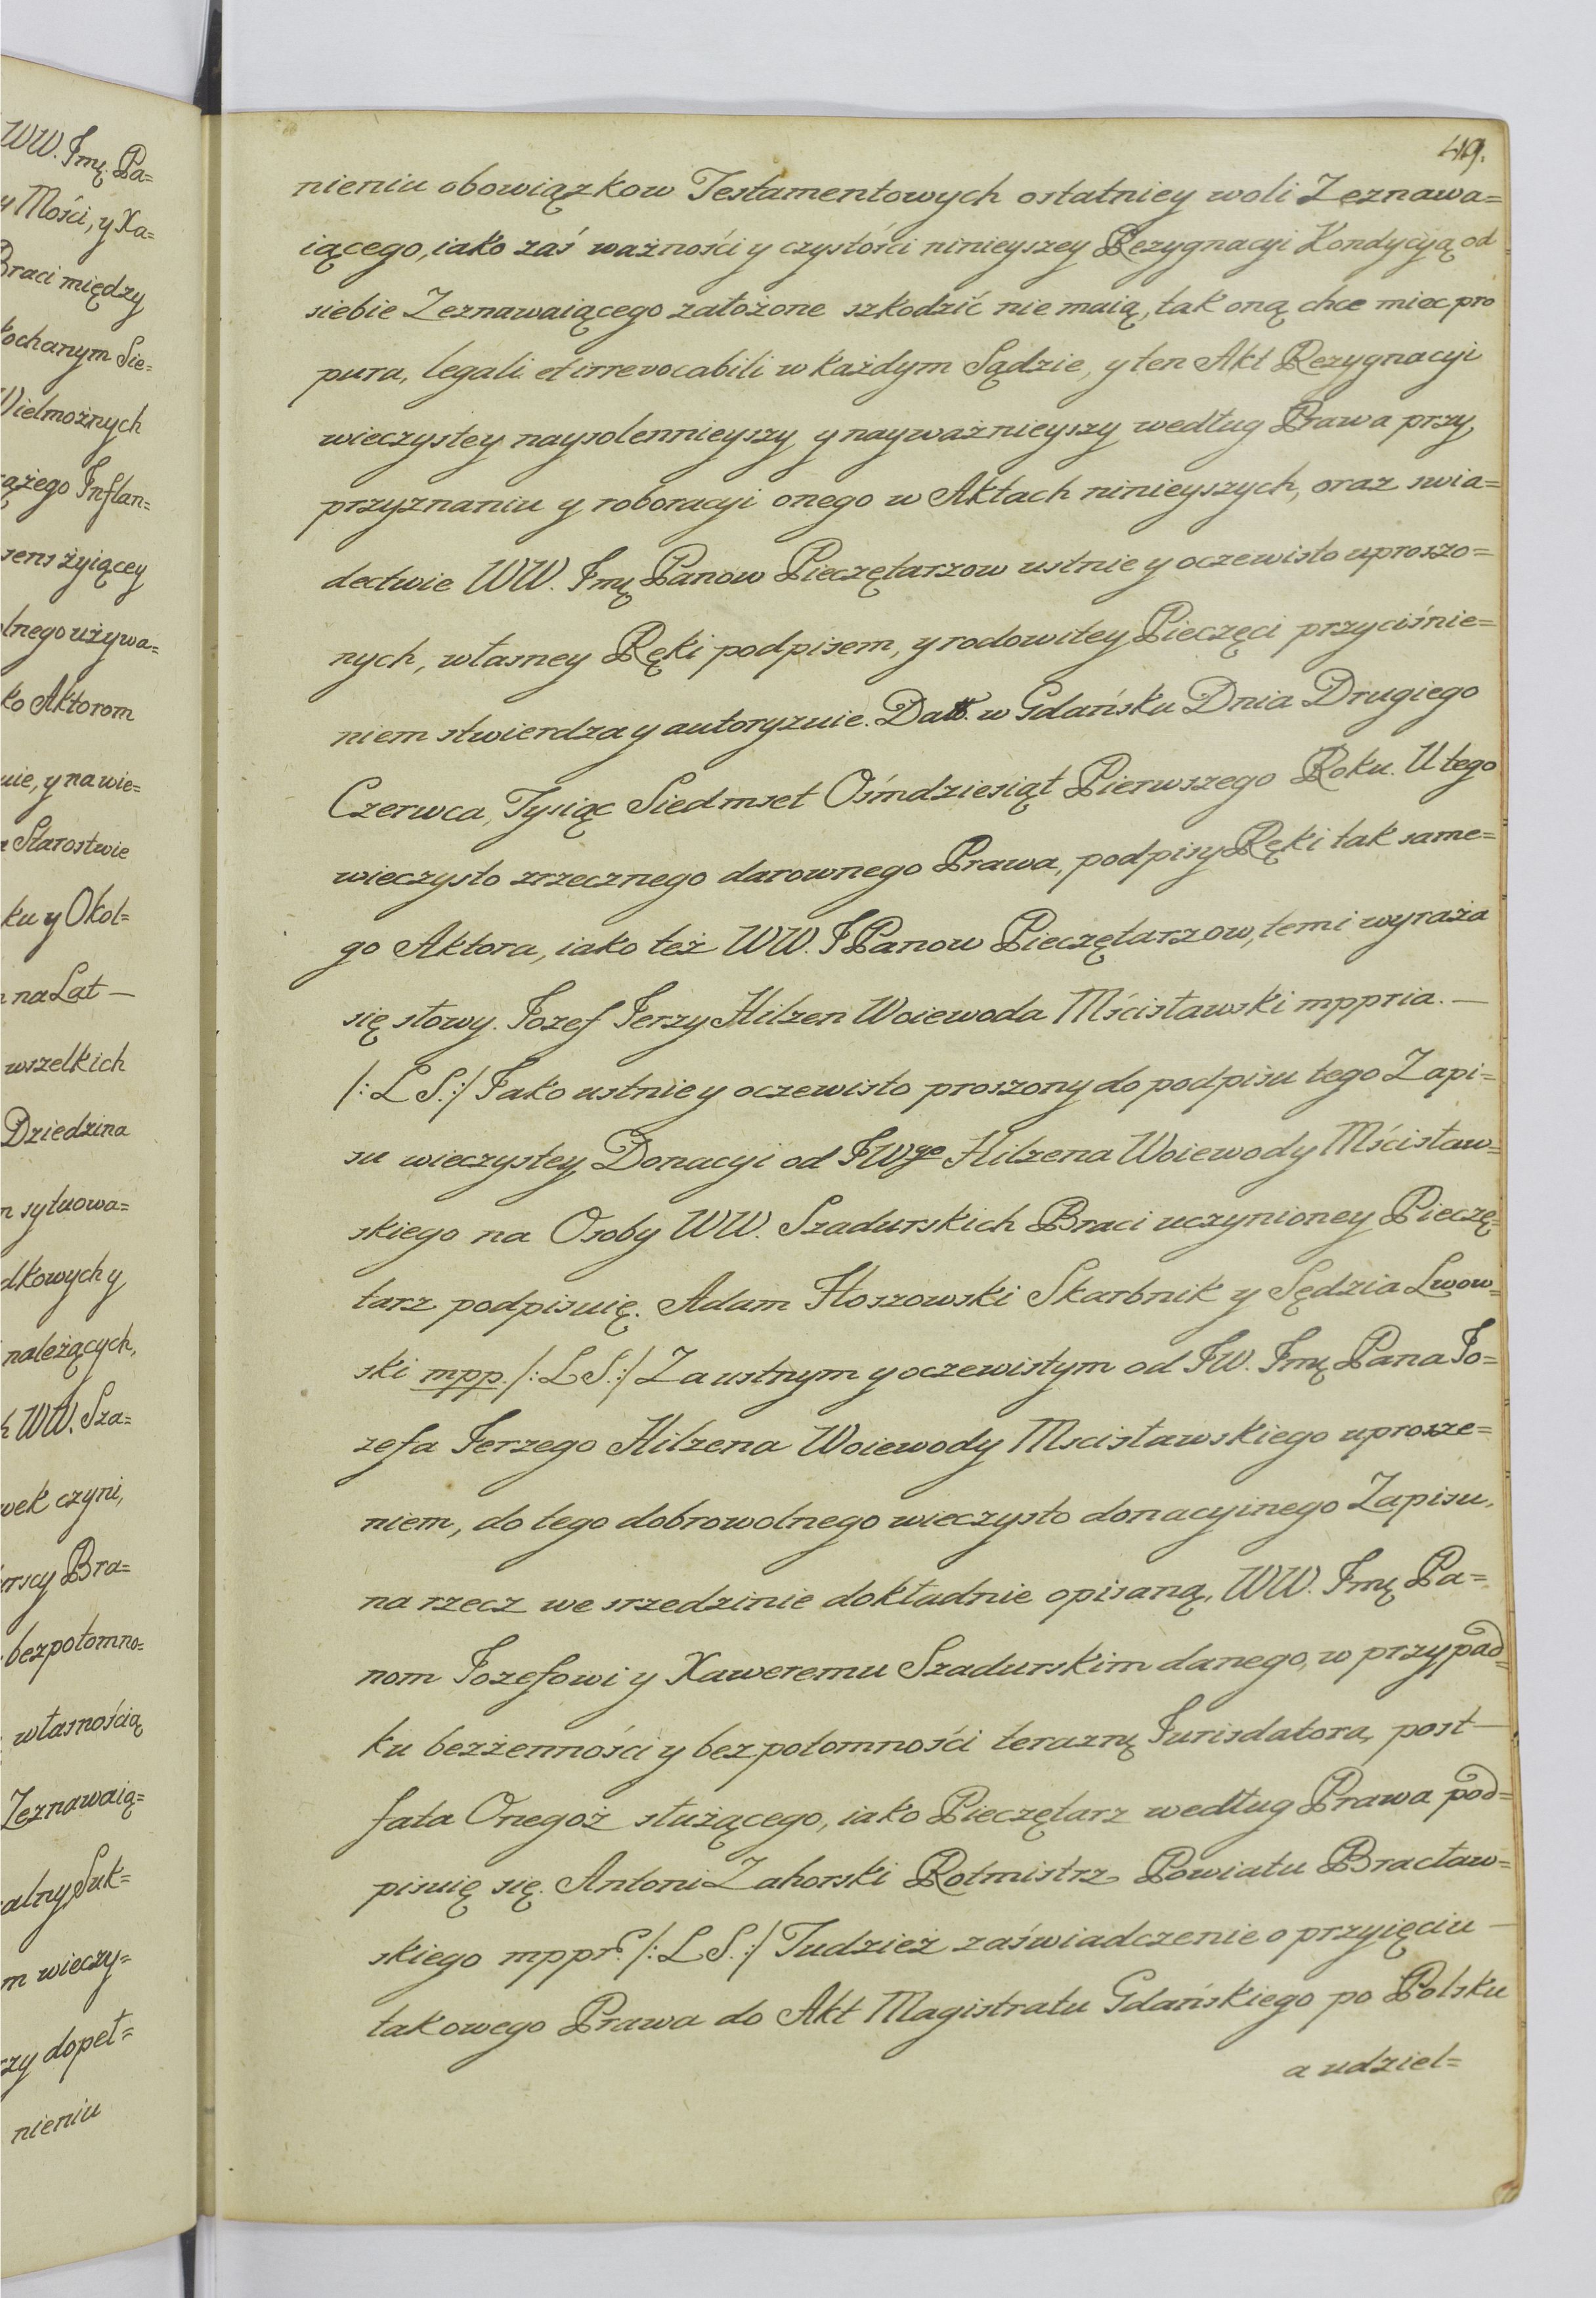 WW. Jmę. Pa=
y Mości, y Xa=
Braci między
kochanym Sie=
Wielmożnych
Inflan=
sens żyiącey
olnego używa=
ko Aktorom
uie, y na wie=
Starostwie
ku y Okol=
na Lat —
wszelkich
Dziedzina
sytuowa=
dkowych y
należących,
h WW. Sza=
wek czyni,
urscy Bra=
bezpotomno=
własnością
Zeznawaią=
alny Suk=
m wieczy=
rzy dopeł=
nieniu
49.
nieniu obowiązkow Testamentowych ostatniey woli Zeznawa=
iącego, iako zaś ważności y czystości ninieyszey Rezygnacyi Kondycyią od
siebie Zeznawaiącego założone szkodzić nie maią, tak oną chce miec pro
pura, legali et irrevocabili w każdym Sądzie, y ten Akt Rezygnacyi
wieczystey naysolennieyszy y nayważnieyszy według Prawa przy
przyznaniu y roboracyi onego w Aktach ninieyszych, oraz swia=
dectwie WW. Jmę Panow Pieczętarzow ustnie y oczewisto uproszo=
nych, własney Ręki podpisem, y rodowitey Pieczęci przyciśnie=
niem stwierdza y autoryzuie. Datt. w Gdańsku Dnia Drugiego
Czerwca, Tysiąc Siedmset Ośmdziesiąt Pierwszego Roku. U tego
wieczysto zrzecznego darownego Prawa, podpisy Ręki tak same=
go Aktora, iako też WW. JPanow Pieczętarzow, temi wyraża
się słowy. Jozef Jerzy Hilzen Woiewoda Mścisławski mppria. —
/: L S.:/ Jako ustnie y oczewisto proszony do podpisu tego Zapi=
su wieczystey Donacyi od JWgo Hilzena Woiewody Mścisław=
skiego na Osoby WW. Szadurskich Braci uczynioney Pieczę=
tarz podpisuię. Adam Hoszowski Skarbnik y Sędzia Lwow=
ski mpp. /: L S.:/ Za ustnym y oczewistym od JW. Jmę Pana Jo=
zefa Jerzego Hilzena Woiewody Mscisławskiego uprosze=
niem, do tego dobrowolnego wieczysto donacyinego Zapisu,
na rzecz we srzedzinie dokładnie opisaną, WW. Jmę Pa=
nom Jozefowi y Xaweremu Szadurskim danego, w przypad=
ku bezżenności y bezpotomności teraznę Jurisdatora, post —
fata Onegoż służącego, iako Pieczętarz według Prawa pod=
pisuię się. Antoni Zahorski Rotmistrz Powiatu Bracław=
skiego mppr. /: L S.:/ Tudzież zaświadczenie o przyięciu —
takowego Prawa do Akt Magistratu Gdańskiego po Polsku
a udziel=